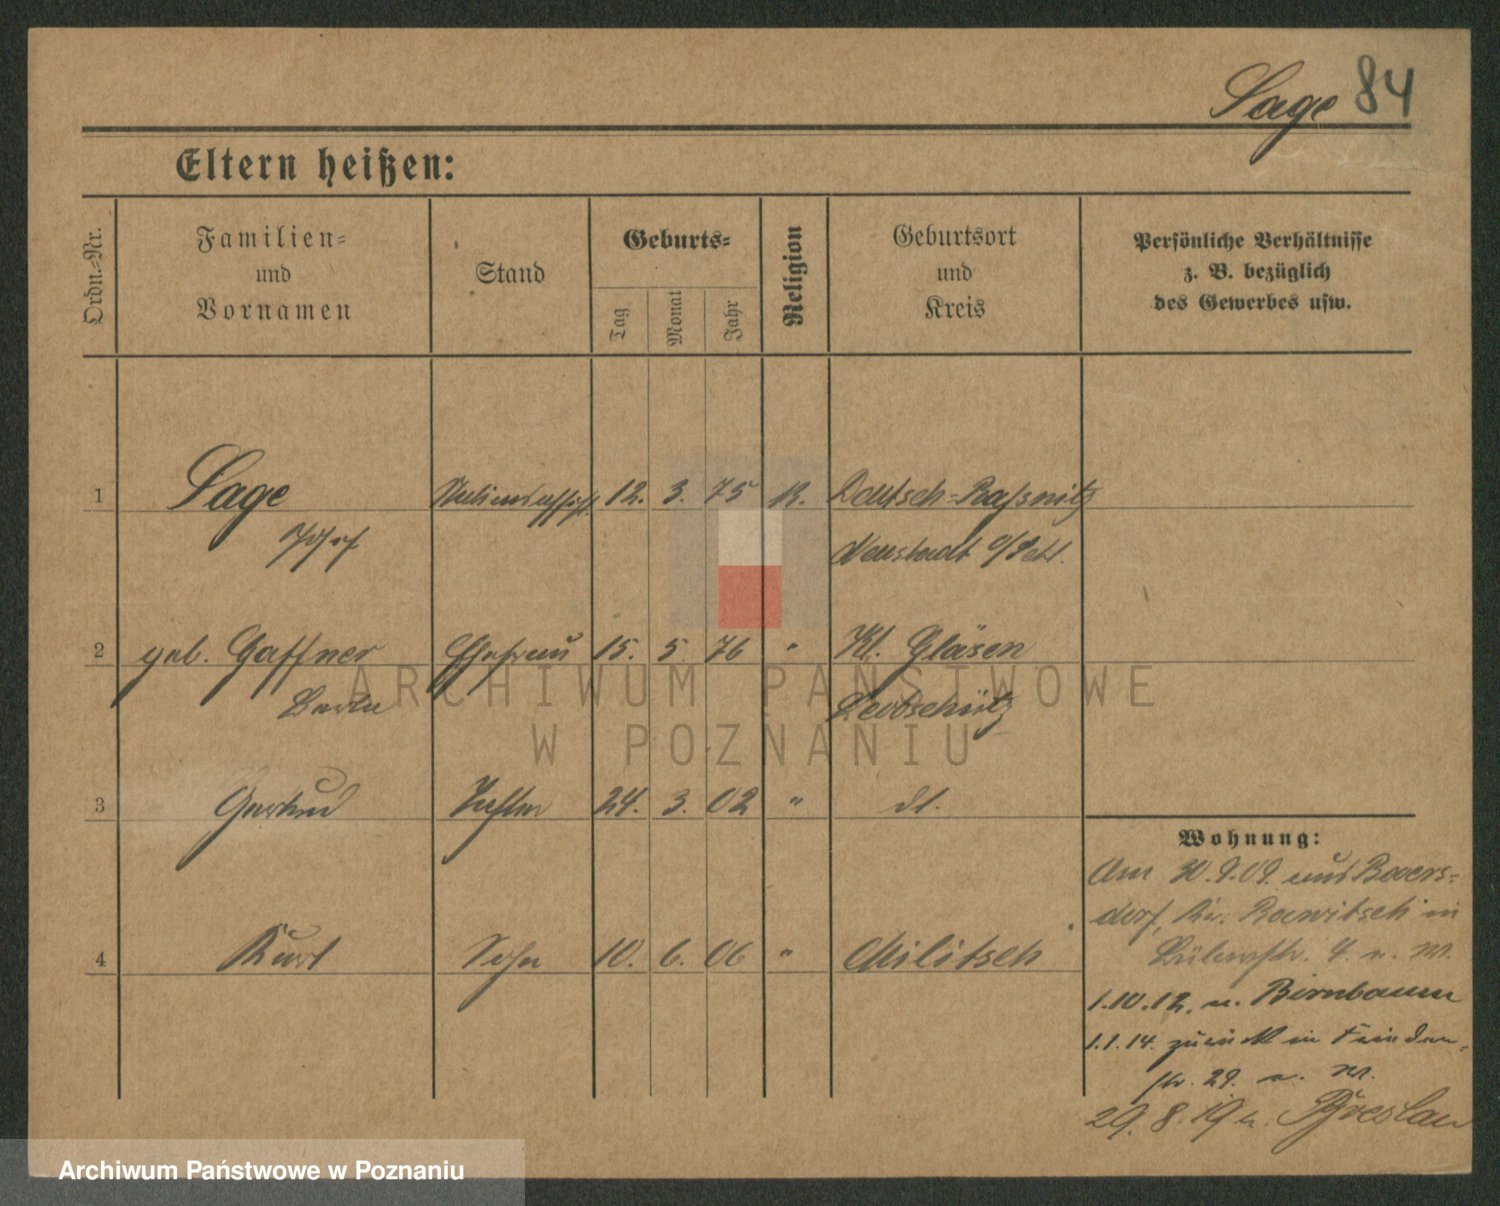 Sage 84
Eltern heißen:
Ordn.-Nr.
Familien-
und
Vornamen
Stand
Geburts-
Tag
Monat
Jahr
Religion
Geburtsort
und
Kreis
Persönliche Verhältnisse
z. B. bezüglich
des Gewerbes usw.
1 Sage 12. 3. 75 K. Deutsch-Raßnitz
Josef Neustadt o/Schl.
2 geb. Gaffner Ehefrau 15. 5. 76 " Kl. Gläsen
Leobschütz
3 Gertrud Tochter 24. 3. 02 " dt.
4 Kurt Sohn 10. 6. 06 " Militsch
Wohnung:
Am 30.9.09. aus
dorf, Kr. Rawitsch in
4. u. W.
1.10.12. n. Birnbaum
1.1.14. zurück in Frieden-
str. 29. u. W.
29.8.19 n. Breslau
ARCHIWUM PAŃSTWOWE
W POZNANIU
Archiwum Państwowe w Poznaniu